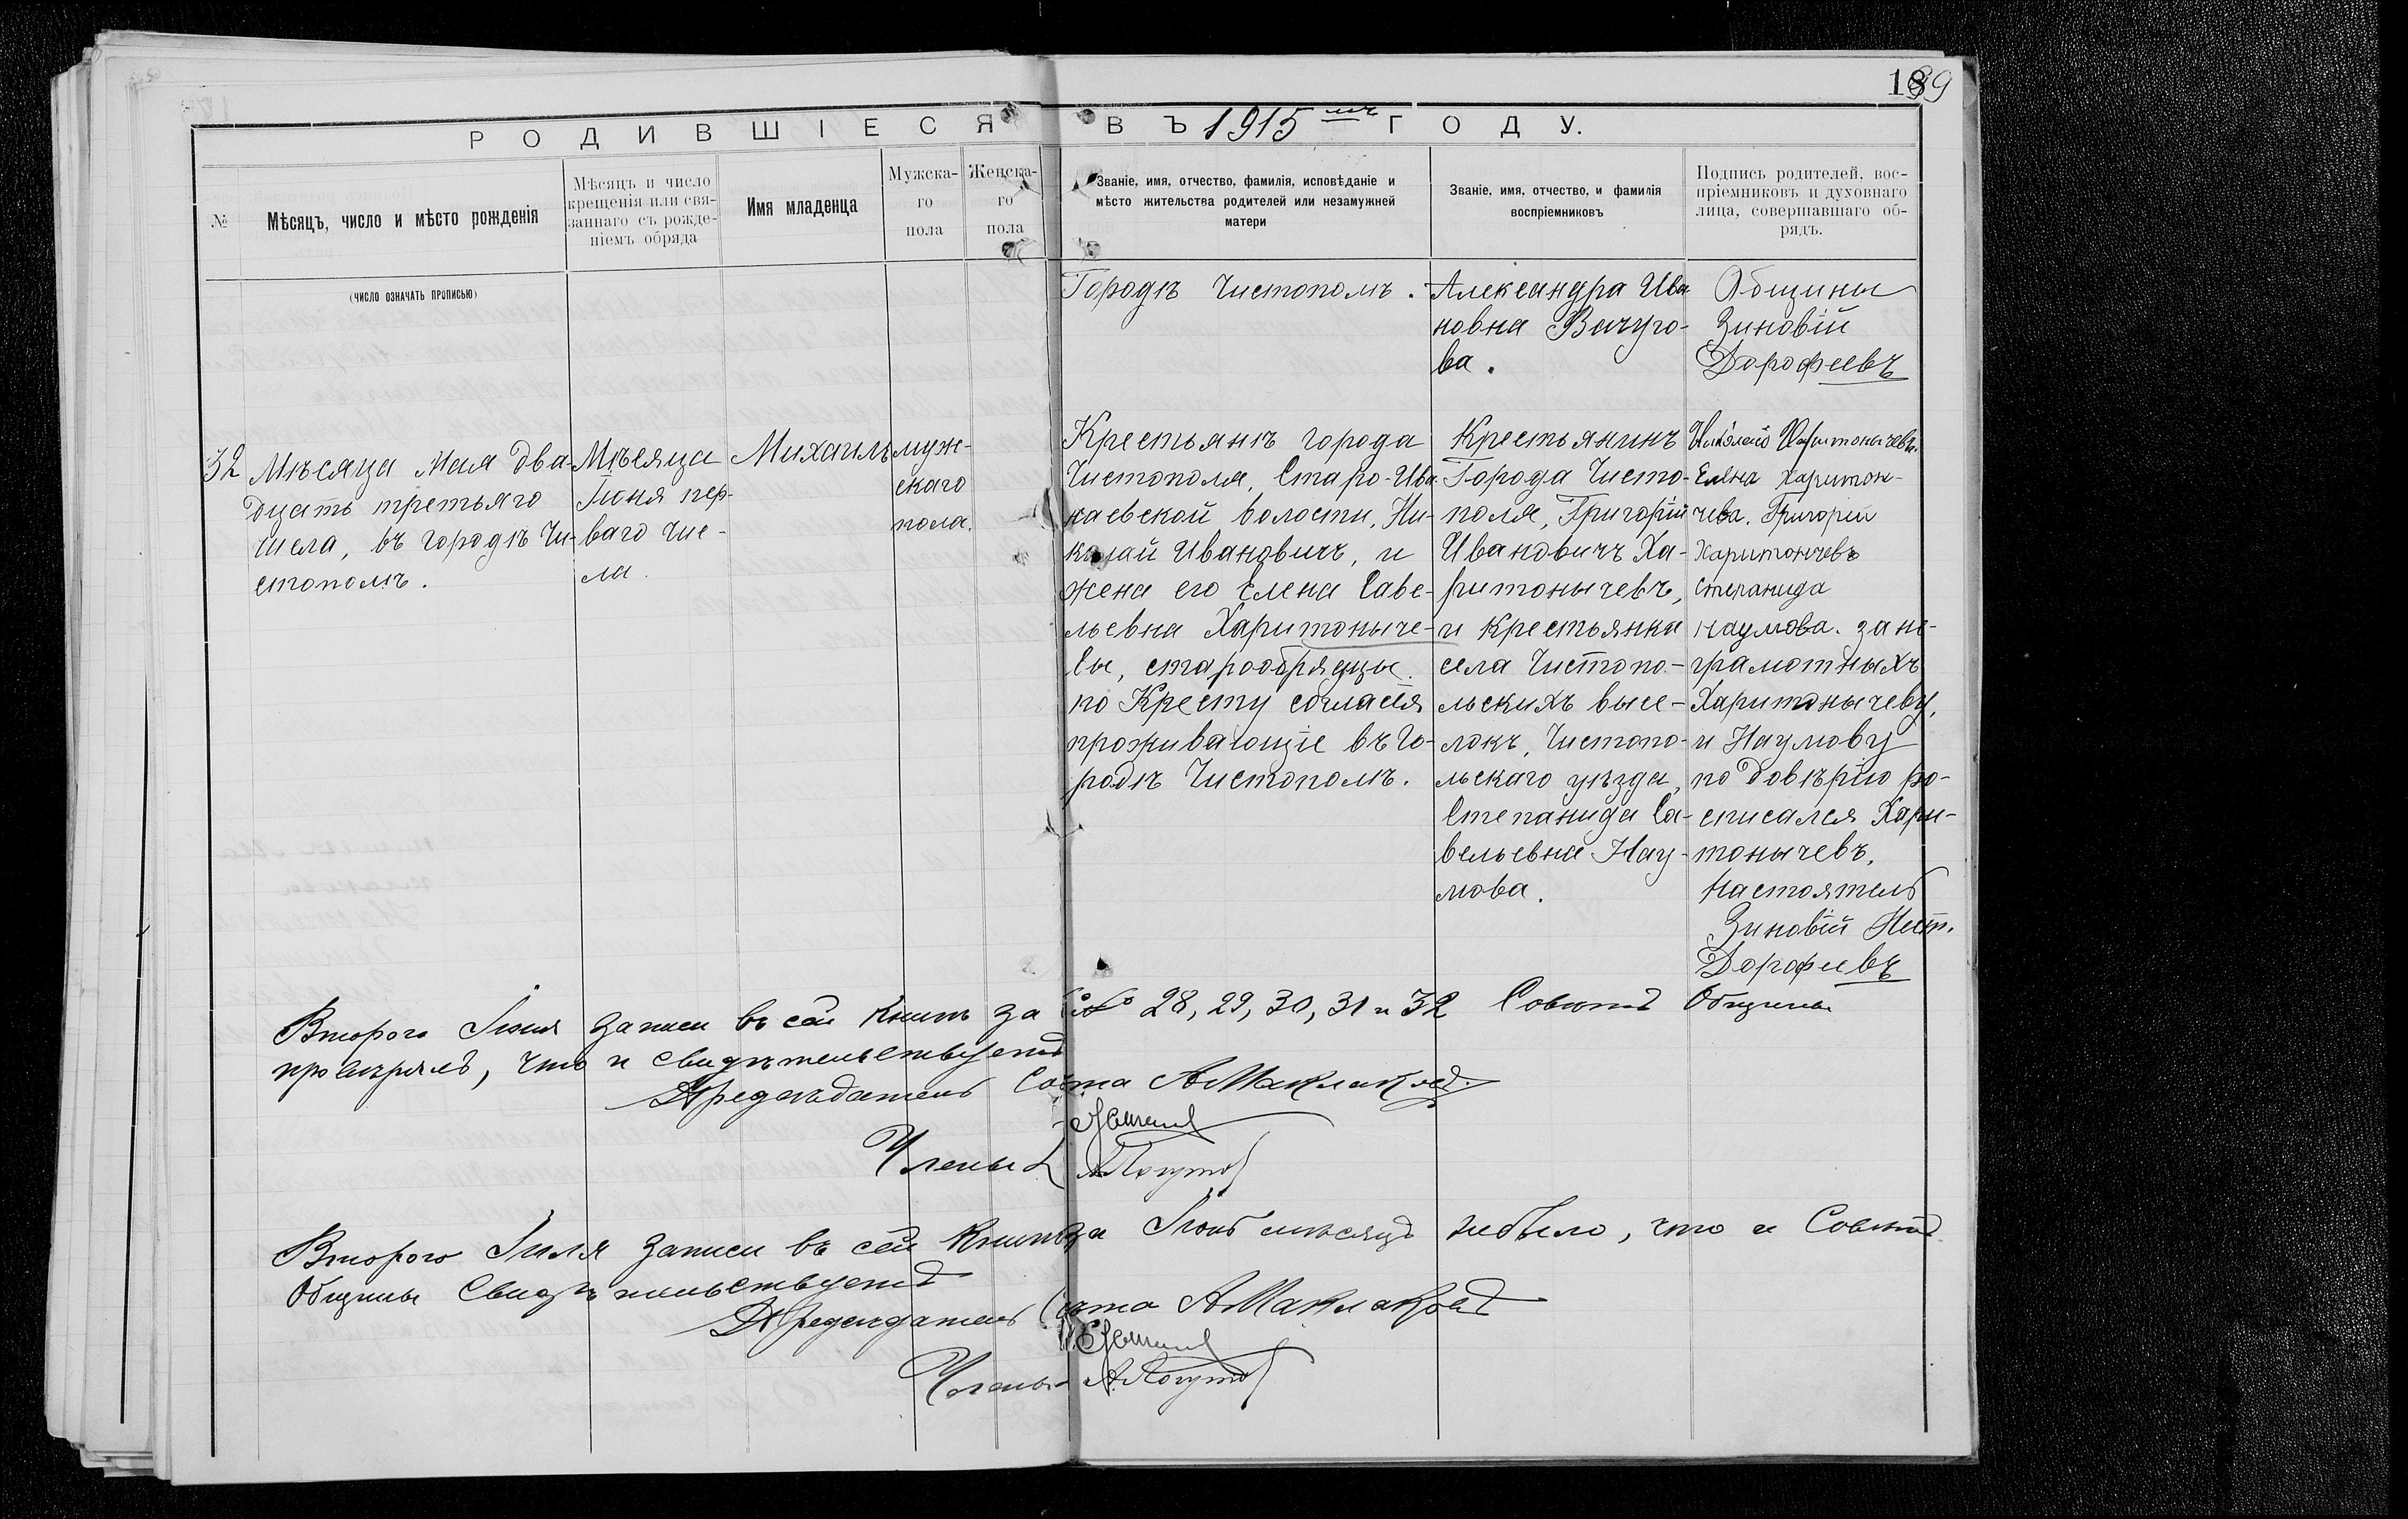 189
РОДИВШІЕСЯ ВЪ 1915 мъ ГОДУ.
№
Мѣсяцъ, число и мѣсто рожденія
Мѣсяцъ и число
крещенія или свя-
заннаго съ рожде-
ніемъ обряда
Имя младенца
Мужска-
го
пола
Женска-
го
пола
Званіе, имя, отчество, фамилія, исповѣданіе и
мѣсто жительства родителей или незамужней
матери
Званіе, имя, отчество, и фамилія
воспріемниковъ
Подпись родителей, вос-
пріемниковъ и духовнаго
лица, совершавшаго об-
рядъ.
(число означать прописью)
Городѣ Чистополѣ.
Александра Ива-
новна Вачуго-
ва.
Общины
Зиновій
Дорофеевъ
32
Мѣсяца Мая два-
дцать третьяго
числа, въ городѣ Чи-
стополѣ.
Мѣсяца
Іюня пер-
ваго чис-
ла.
Михаилъ
муж-
скаго
пола.
Крестьянъ города
Чистополя, Старо-Ива-
наевской волости, Ни-
колай Ивановичъ, и
жена его Елена Саве-
льевна Харитоныче-
вы, старообрядцы
по Кресту согласія
проживающіе въ Го-
родѣ Чистополѣ.
Крестьянинъ
Города Чисто-
поля, Григорій
Ивановичъ Ха-
ритонычевъ,
и крестьянка
села Чистопо-
льскихъ высе-
локъ, Чистопо-
льскаго уѣзда,
Степанида Са-
вельевна Нау-
мова.
Николай Харитонычевъ.
Елена Харитон-
чева. Григорій
Харитончевъ
Степанида
Наумова. За не-
грамотныхъ
Харитонычеву,
и Наумову
по довѣрію ро-
списался Хари-
тонычевъ.
Настоятель
Зиновій Нест.
Дорофеевъ
Второго Іюня записи въ сей Книгѣ за № 28, 29, 30, 31 и 32 Совѣтъ Общины
провѣрялъ, что и свидѣтельствуетъ
Предсѣдатель Совѣта А Маклаковъ
Члены
Второго Іюля записи въ сей Книгѣ за Іюнь мѣсяцъ небыло, что и Совѣтъ
Общины Свидѣтельствуетъ
Предсѣдатель Совѣта А Маклаковъ
Члены